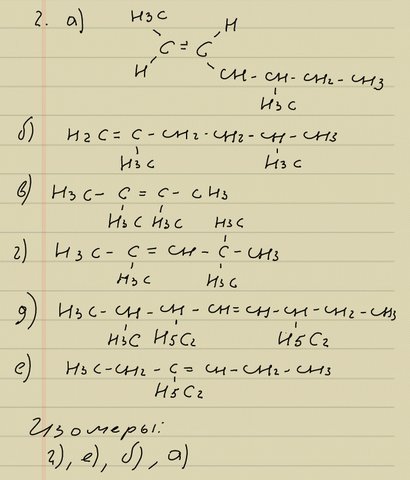 2. а) H3C H
C = C
H CH - CH - CH2 - CH3
H3C
б) H2C = C - CH2 - CH2 - CH - CH3
H3C H3C
в) H3C - C = C - CH3
H3C H3C
H3C
г) H3C - C = CH - C - CH3
H3C H3C
д) H3C - CH - CH - CH = CH - CH - CH2 - CH3
H3C H5C2 H5C2
е) H3C - CH2 - C = CH - CH2 - CH3
H5C2
Изомеры:
г), е), б), а)